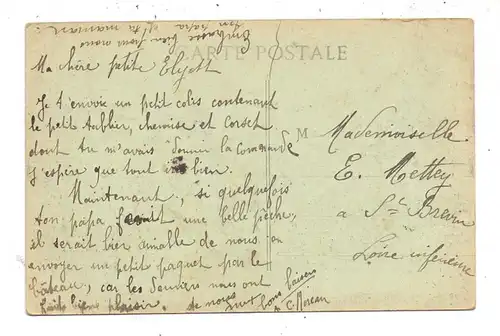 CARTE POSTALE
Embrasse bien pour nous
ton papa et ta maman.
Ma chère petite
Je t'envoie un petit colis contenant
le petit tablier, chemise et Corset
dont tu m'avais donner la commande
J'espère que tout ira bien.
Maintenant, si quelquefois
ton papa une belle pêche,
il serait bien aimable de nous en
envoyer un petit paquet par le
bateau, car les derniers nous ont
fait bien plaisir. de nous
bons baisers
M
Mademoiselle
E. Mettey
a St Brevin
Loire inférieure